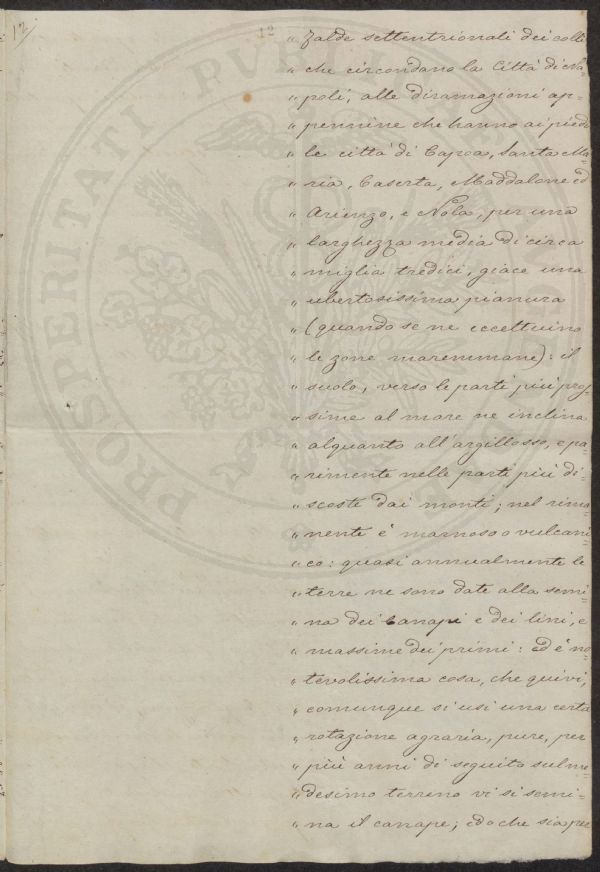 12
12
PROSPERITATI PVB
" zalde settentrionali dei colli
" che circondano la Città di Na-
" poli, alle diramazioni ap-
" pennine che hanno ai piedi
" le città di Capoa, Santa Ma-
" ria, Caserta, Maddalone ed
" Arienzo, e Nola, per una
" larghezza media di circa
" miglia tredici, giace una
" ubertosissima pianura
" (quando se ne eccettuino
" le zone maremmane): il
" suolo, verso le parti più pros-
" sime al mare ne inclina
" alquanto all'argillosso, e pa-
" rimente nelle parti più di-
" scoste dai monti; nel rima-
" nente è marnoso o vulcani-
" co: quasi annualmente le
" terre ne sono date alla semi-
" na dei canapi e dei lini, e
" massime dei primi: ed è no-
" tevolissima cosa, che quivi,
" comunque si usi una certa
" rotazione agraria, pure, per
" più anni di seguito sul me-
" desimo terreno vi si semi-
" na il canape; ed che sia per